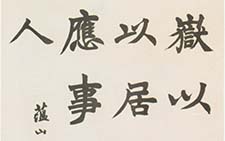 嶽以
以居
應事
人
薀山